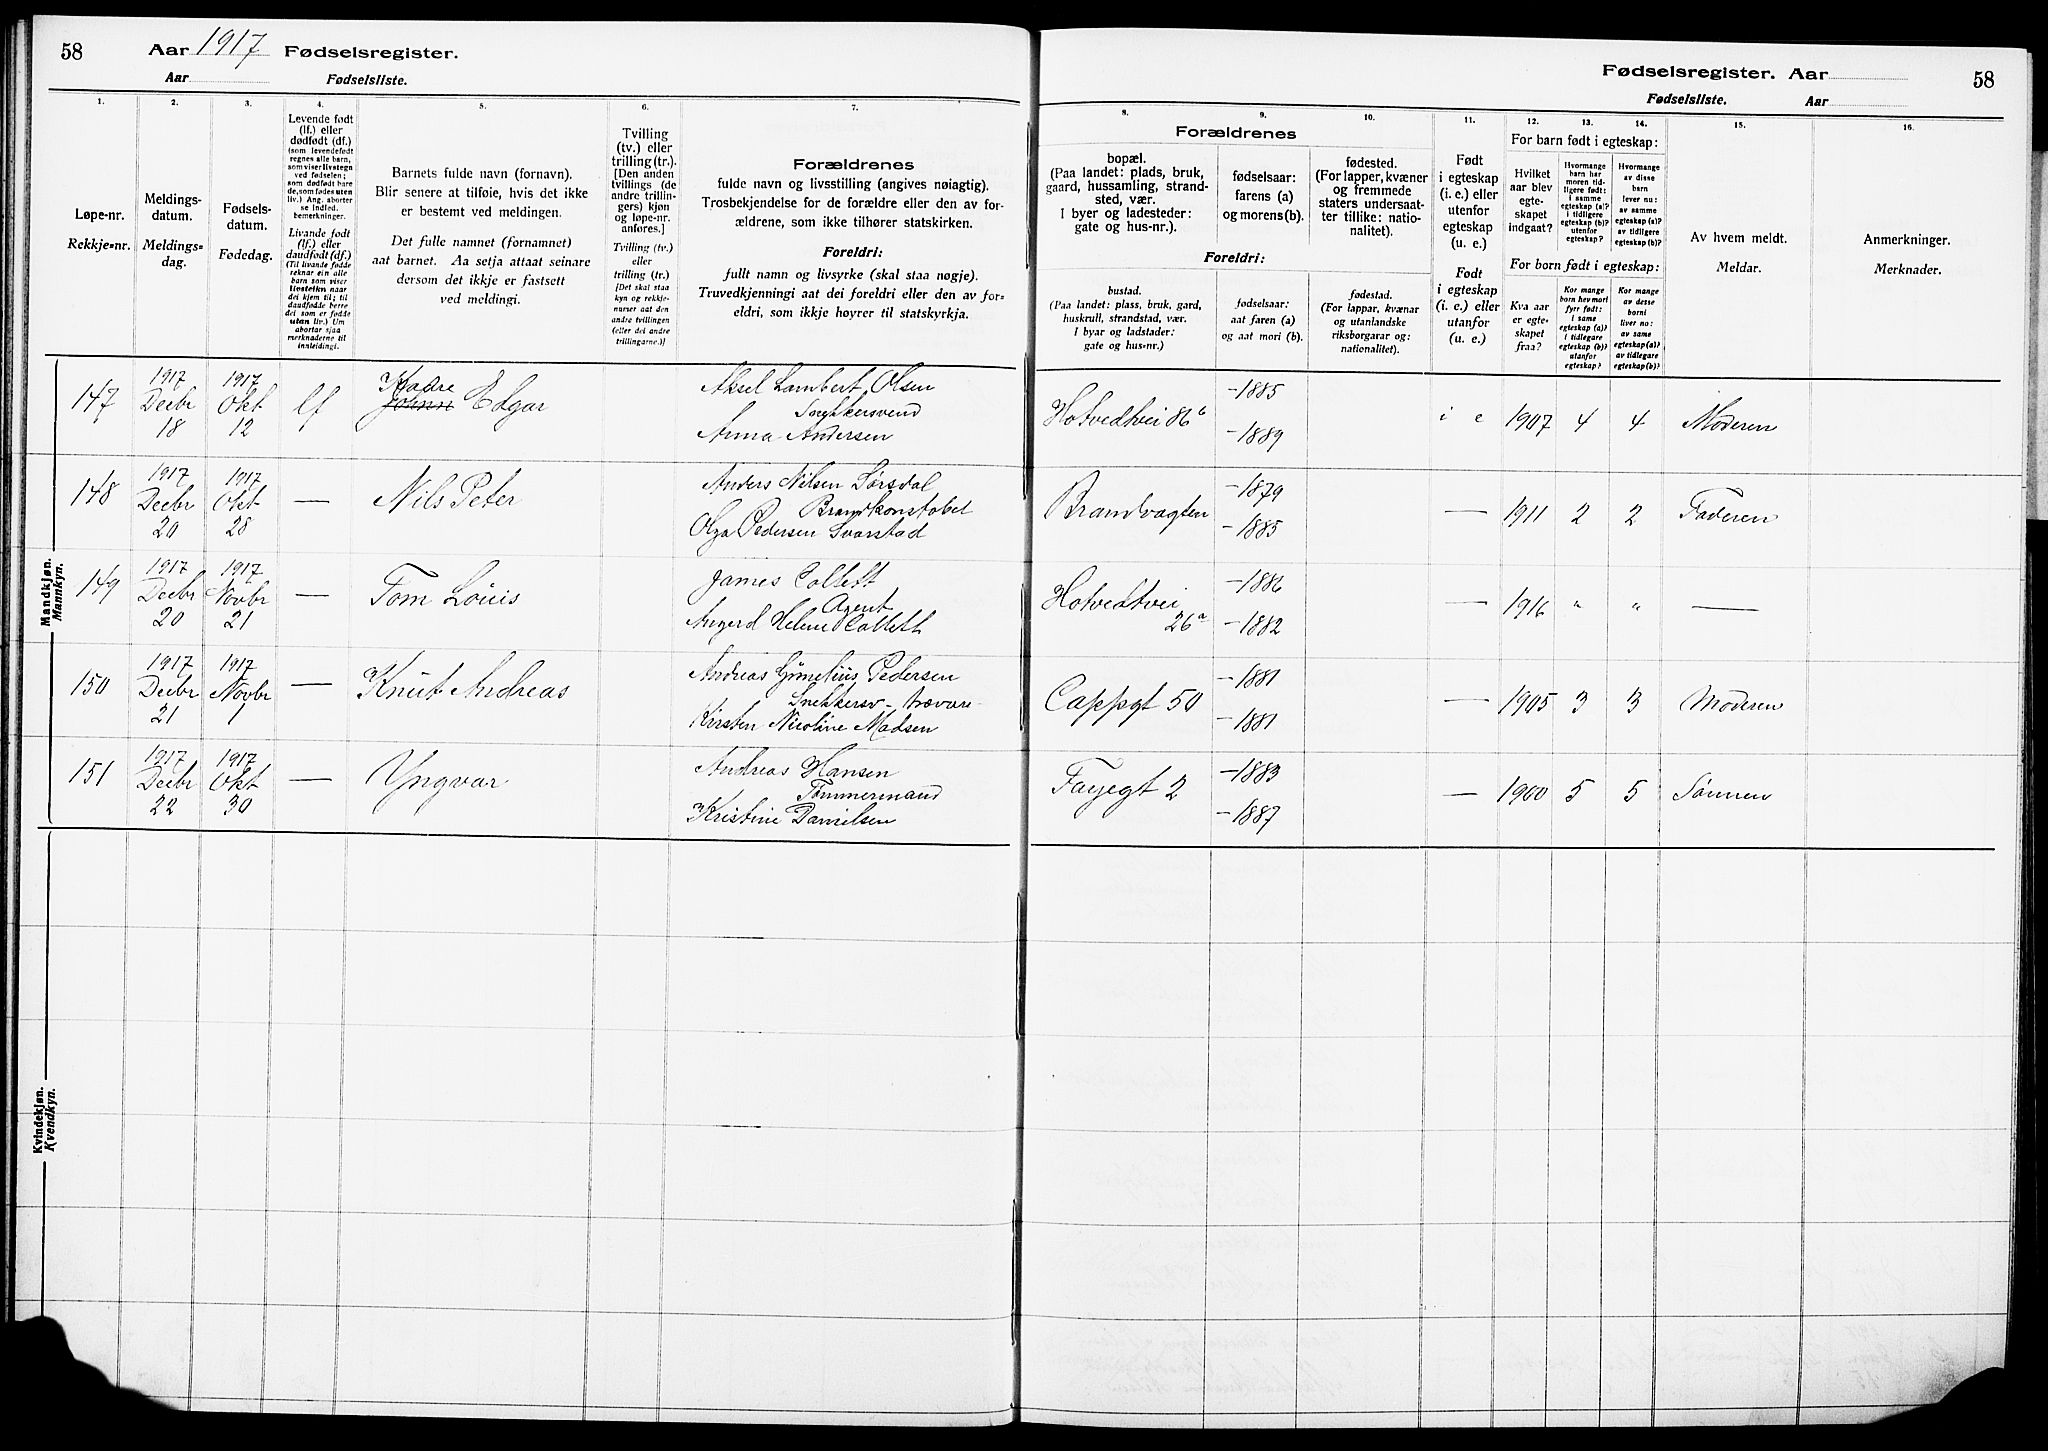 58
Aar 1917 Fødselsregister.
Aar
Fødselsliste.
Fødselsregister. Aar
58
Fødselsliste.
Aar
1.
2.
3.
4.
5.
6.
7.
Løpe-nr.
Rekkje=nr.
Meldings-
datum.
Meldings=
dag.
Fødsels-
datum.
Fødedag.
Levende født
(lf.) eller
dødfødt (df.)
(som levendefødt
regnes alle barn,
som viser livstegn
ved fødselen;
som dødfødt bare
de, som fødes uten
liv.) Ang. aborter
se indled.
bemerkninger.
Livande født
(lf.) eller
daudfødt (df.)
(Til livande fødde
reknar ein alle
barn som viser
livsteikn naar
dei kjem til; til
daudfødde berre
dei som er fødde
utan liv.) Um
abortar sjaa
merknaderne til
innleidingi.
Barnets fulde navn (fornavn).
Blir senere at tilføie, hvis det ikke
er bestemt ved meldingen.
Det fulle namnet (fornamnet)
aat barnet. Aa setja attaat seinare
dersom det ikkje er fastsett
ved meldingi.
Tvilling
(tv.) eller
trilling (tr.).
[Den anden
tvillings (de
andre trillin-
gers) kjøn
og løpe-nr.
anføres.]
Tvilling (tv.)
eller
trilling (tr.)
[Det skal staa
kyn og rekkje-
numer aat den
andre tvillingen
(eller dei andre
trillingarne.)]
Forældrenes
fulde navn og livsstilling (angives nøiagtig).
Trosbekjendelse for de forældre eller den av for-
ældrene, som ikke tilhører statskirken.
Foreldri:
fullt namn og livsyrke (skal staa nøgje).
Truvedkjenningi aat dei foreldri eller den av for=
eldri, som ikkje høyrer til statskyrkja.
8.
9.
10.
11.
12.
13.
14.
15.
16.
Forældrenes
bopæl.
(Paa landet: plads, bruk,
gaard, hussamling, strand-
sted, vær.
I byer og ladesteder:
gate og hus-nr.).
fødselsaar:
farens (a)
og morens (b).
fødested.
(For lapper, kvæner
og fremmede
staters undersaat-
ter tillike: natio-
nalitet).
Foreldri:
bustad.
(Paa landet: plass, bruk, gard,
huskrull, strandstad, vær.
I byar og ladstader:
gate og hus=nr.)
fødselsaar:
aat faren (a)
og aat mori (b).
fødestad.
(For lappar, kvænar
og utanlandske
riksborgarar og:
nationalitet).
Født
i egteskap
(i. e.) eller
utenfor
egteskap
(u. e.)
Født
i egteskap
(i. e.) eller
utanfor
(u. e.)
For barn født i egteskap:
Hvilket
aar blev
egte-
skapet
indgaat?
Hvormange
barn har
moren tid-
ligere født:
i samme
egteskap (a)?
i tidligere
egteskap (b)?
utenfor
egteskap?
Hvormange
av disse
barn
lever nu:
av samme
egteskap (a)?
av tidligere
egteskap (b)?
For born født i egteskap:
Kva aar
er egte-
skapet
fraa?
Kor mange
born hev mori
fyrr født:
i same
egteskap (a)?
i tidlegare
egteskap (b)?
utanfor
egteskap?
Kor mange
av desse
borni
liver no:
av same
egteskap (a)?
av tidlegare
egteskap (b)?
Av hvem meldt.
Meldar.
Anmerkninger.
Merknader.
Mandkjøn.
Mannkyn.
147
1917
Decbr
18
1917
Okt
12
lf
Kaare
Johnn Edgar
Aksel Lambert Olsen
Snekkersvend
Anna Andersen
Hotvedtvei 86 b
-1885
-1889
i e
1907
4
4
Moderen
148
1917
Decbr
20
1917
Okt
28
—
Nils Peter
Anders Nilsen Sørsdal
Brandkonstabel
Olga Pedersen Svarstad
Brandvagten
-1879
-1885
—
1911
2
2
Faderen
149
1917
Decbr
20
1917
Novbr
21
—
Tom Louis
James Collett
Agent
Angerd Helene Collett
Hotvedtvei
26 a
-1886
-1882
—
1916
"
"
—
150
1917
Decbr
21
1917
Novbr
1
—
Knut Andreas
Andreas Pedersen
Snekkersv - trævare-
Kirsten Nicoline Madsen
Cappgt 50
-1881
-1881
—
1905
3
3
Moderen
151
1917
Decbr
22
1917
Okt
30
—
Yngvar
Andreas Hansen
Tømmermand
Kristine Danielsen
Fayegt 2
-1883
-1887
—
1900
5
5
Sønnen
Kvindekjøn.
Kvendkyn.